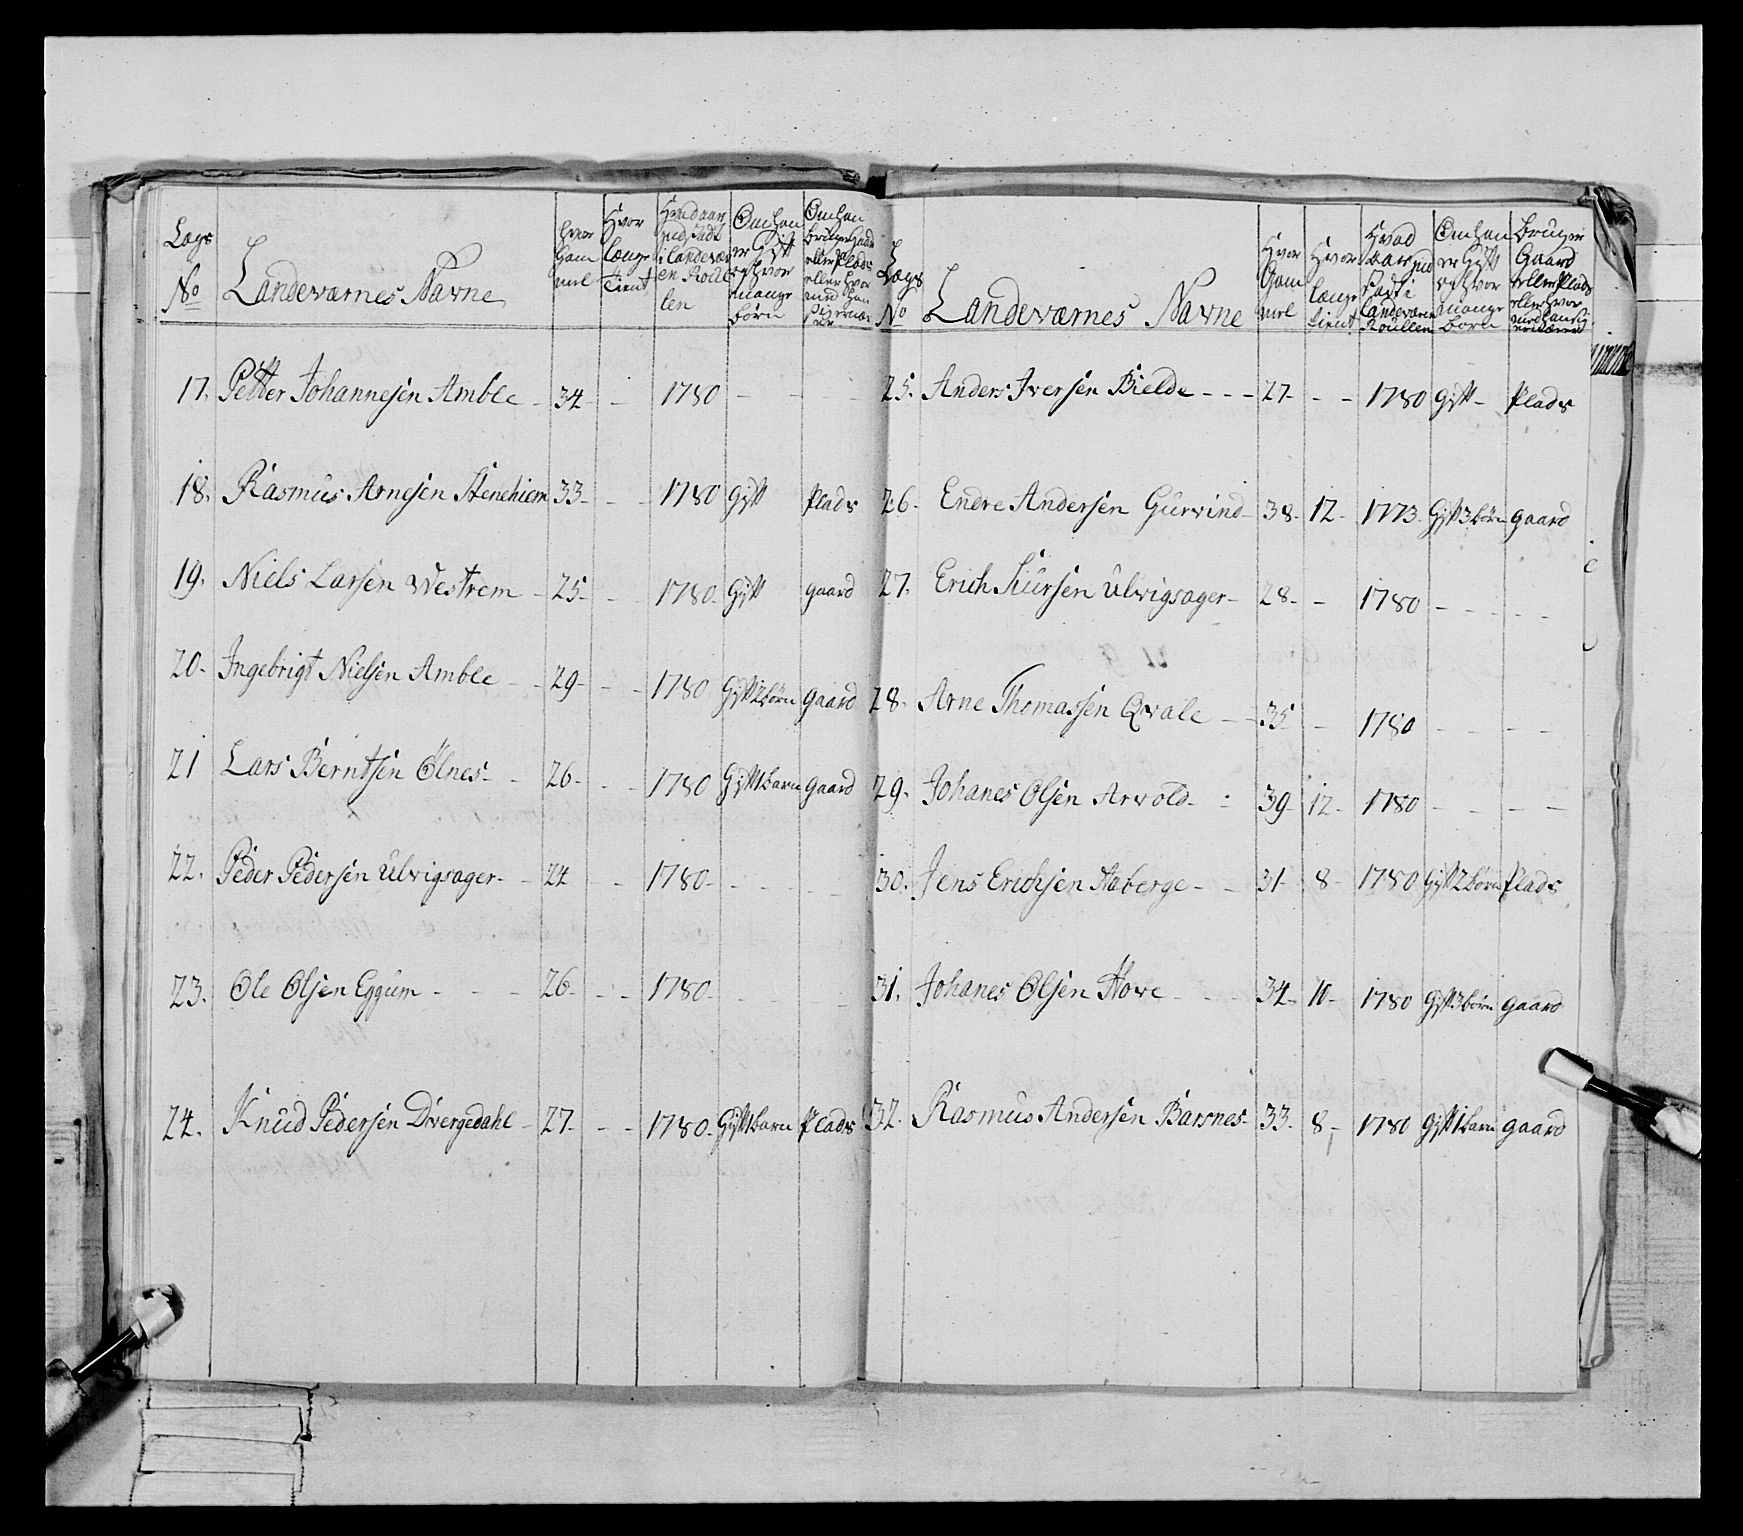 Lags No
Landeværnes Navne
hvor Gam mel
Hvor længe Tient
Hvad aar ind sadt i Landevær en Roul len
Om han er Gift og hvor mange børn
Om han bruger Gaard eller Plads eller hvor med han
17. Petter Johannesen Amble - 34 - 1780 - - -
18. Rasmus Arnesen Stenehiem 33 - - - 1780 Gift Plads
19. Niels Larsen Westrem - 25 - - - 1780 - Gift gaard
20 - Ingebrigt Nielsen Amble - - 29 - - - 1780 Gift 2 børn gaard
21 Lars Berntsen Ølnes - - 26 - - - 1780 Gift 1 barn gaard
22. Peder Pedersen Ulvigsager - - 24 - - 1780 - - - - - -
23. Ole Olsen Eggum - - - 26 - - - 1780 - - - -
24. Knud Pedersen Dvergedahl - 27 - - - 1780 - Gift 1 barn Plads
Lægs No
Landeværnes Navne
Hvor Gam mel
Hvor længe tient
Hvad Aar ind sadt i Landeværn Roullen
Om han er Gift og hvor mange born
bruger Gaard eller Plads eller hvor med han sig ernærer
25. Anders Iversen Bielde - - - 27 - - - 1780 Gift - Plads
26 - Endre Andersen Gurvind - 38 - 12 - 1773 - Gift 3 børn gaard
27. Erich Siursen Ulvigsager - 28 - - 1780 - - - - -
28 - Arne Thomassen Qvale - - 35 - 1780 - - - -
29. Johanes Olsen Arvold - - 39 - 12 - 1780 - - - -
30. Jens Erichsen Haberge - - 31 - 8 - 1780 Gift 2 børn Plads
31. Johanes Olsen Hove - - - 34 - 10 - 1780 Gift 3 børn gaard
32. Rasmus Andersen Barsnes - 33 - 8 - 1780 Gift 1 barn gaard